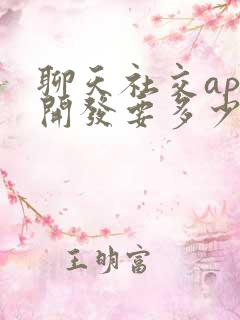 聊天社交ap
開發要多少
王明富